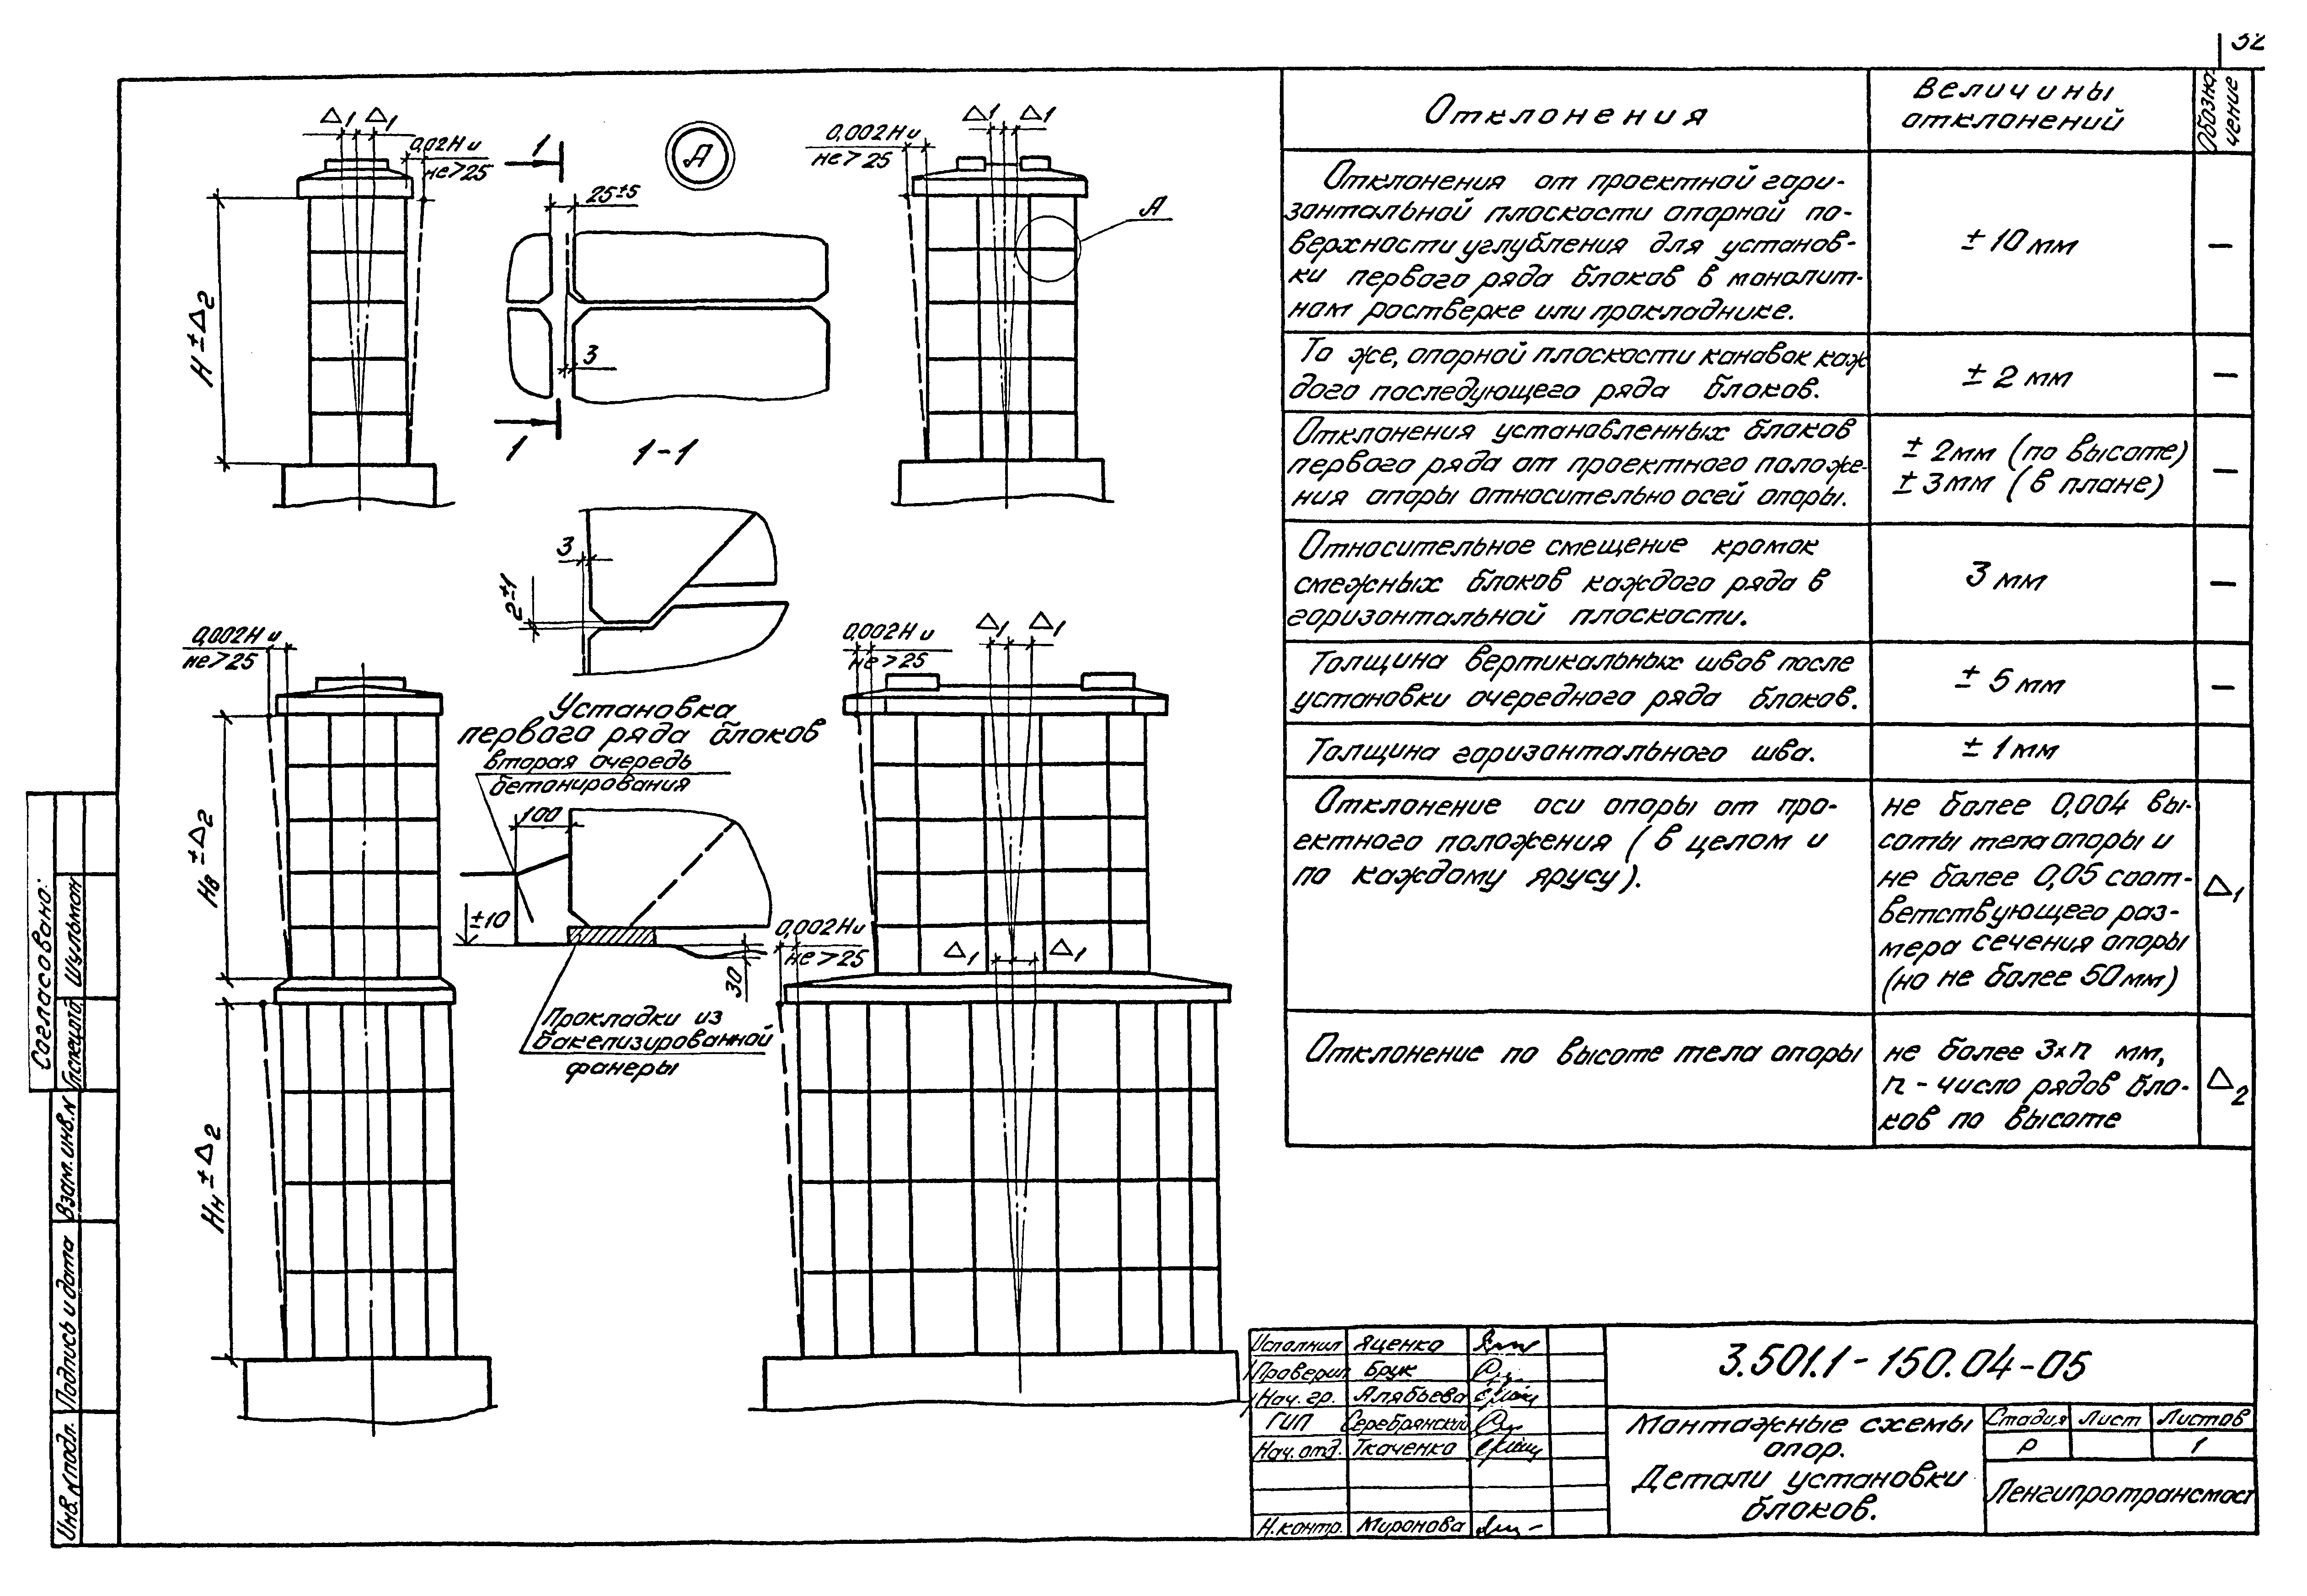 32
Δ1 Δ1
0,02Н и
не>25
1
А
25±5
3
1
1-1
Н±Δ2
0,002Н и
не>25
Δ1 Δ1
А
3
2±1
0,002Н и
не>25
Нв±Δ2
Нн±Δ2
Установка
первого ряда блоков
вторая очередь
бетонирования
100
±10
30
Прокладки из
бакелизированной
фанеры
0,002Н и
не>25
Δ1 Δ1
0,002Н и
не>25
Δ1 Δ1
Отклонения
Величины
отклонений
Обозна-
чение
Отклонения от проектной гори-
зонтальной плоскости опорной по-
верхности углубления для установ-
ки первого ряда блоков в монолит-
ном ростверке или прокладнике.
± 10 мм
—
То же, опорной плоскости канавок каж
дого последующего ряда блоков.
± 2 мм
—
Отклонения установленных блоков
первого ряда от проектного положе-
ния опоры относительно осей опоры.
± 2мм (по высоте)
± 3мм (в плане)
—
Относительное смещение кромок
смежных блоков каждого ряда в
горизонтальной плоскости.
3 мм
—
Толщина вертикальных швов после
установки очередного ряда блоков.
± 5 мм
—
Толщина горизонтального шва.
± 1 мм
Отклонение оси опоры от про-
ектного положения (в целом и
по каждому ярусу).
не более 0,004 вы-
соты тела опоры и
не более 0,05 соот-
ветствующего раз-
мера сечения опоры
(но не более 50мм)
Δ1
Отклонение по высоте тела опоры
не более 3×n мм,
n - число рядов бло-
ков по высоте
Δ2
Согласовано:
Гл.спец.отд. Шульман
Взам. инв. N
Подпись и дата
Инв. N подл.
Исполнил Яценко
Проверил Брук
Нач. гр. Алябьева
ГИП Серебрянский
Нач. отд. Ткаченко
Н. контр. Миронова
3.501.1-150.04-05
Монтажные схемы
опор.
Детали установки
блоков.
Стадия Лист Листов
Р 1
Ленгипротрансмост